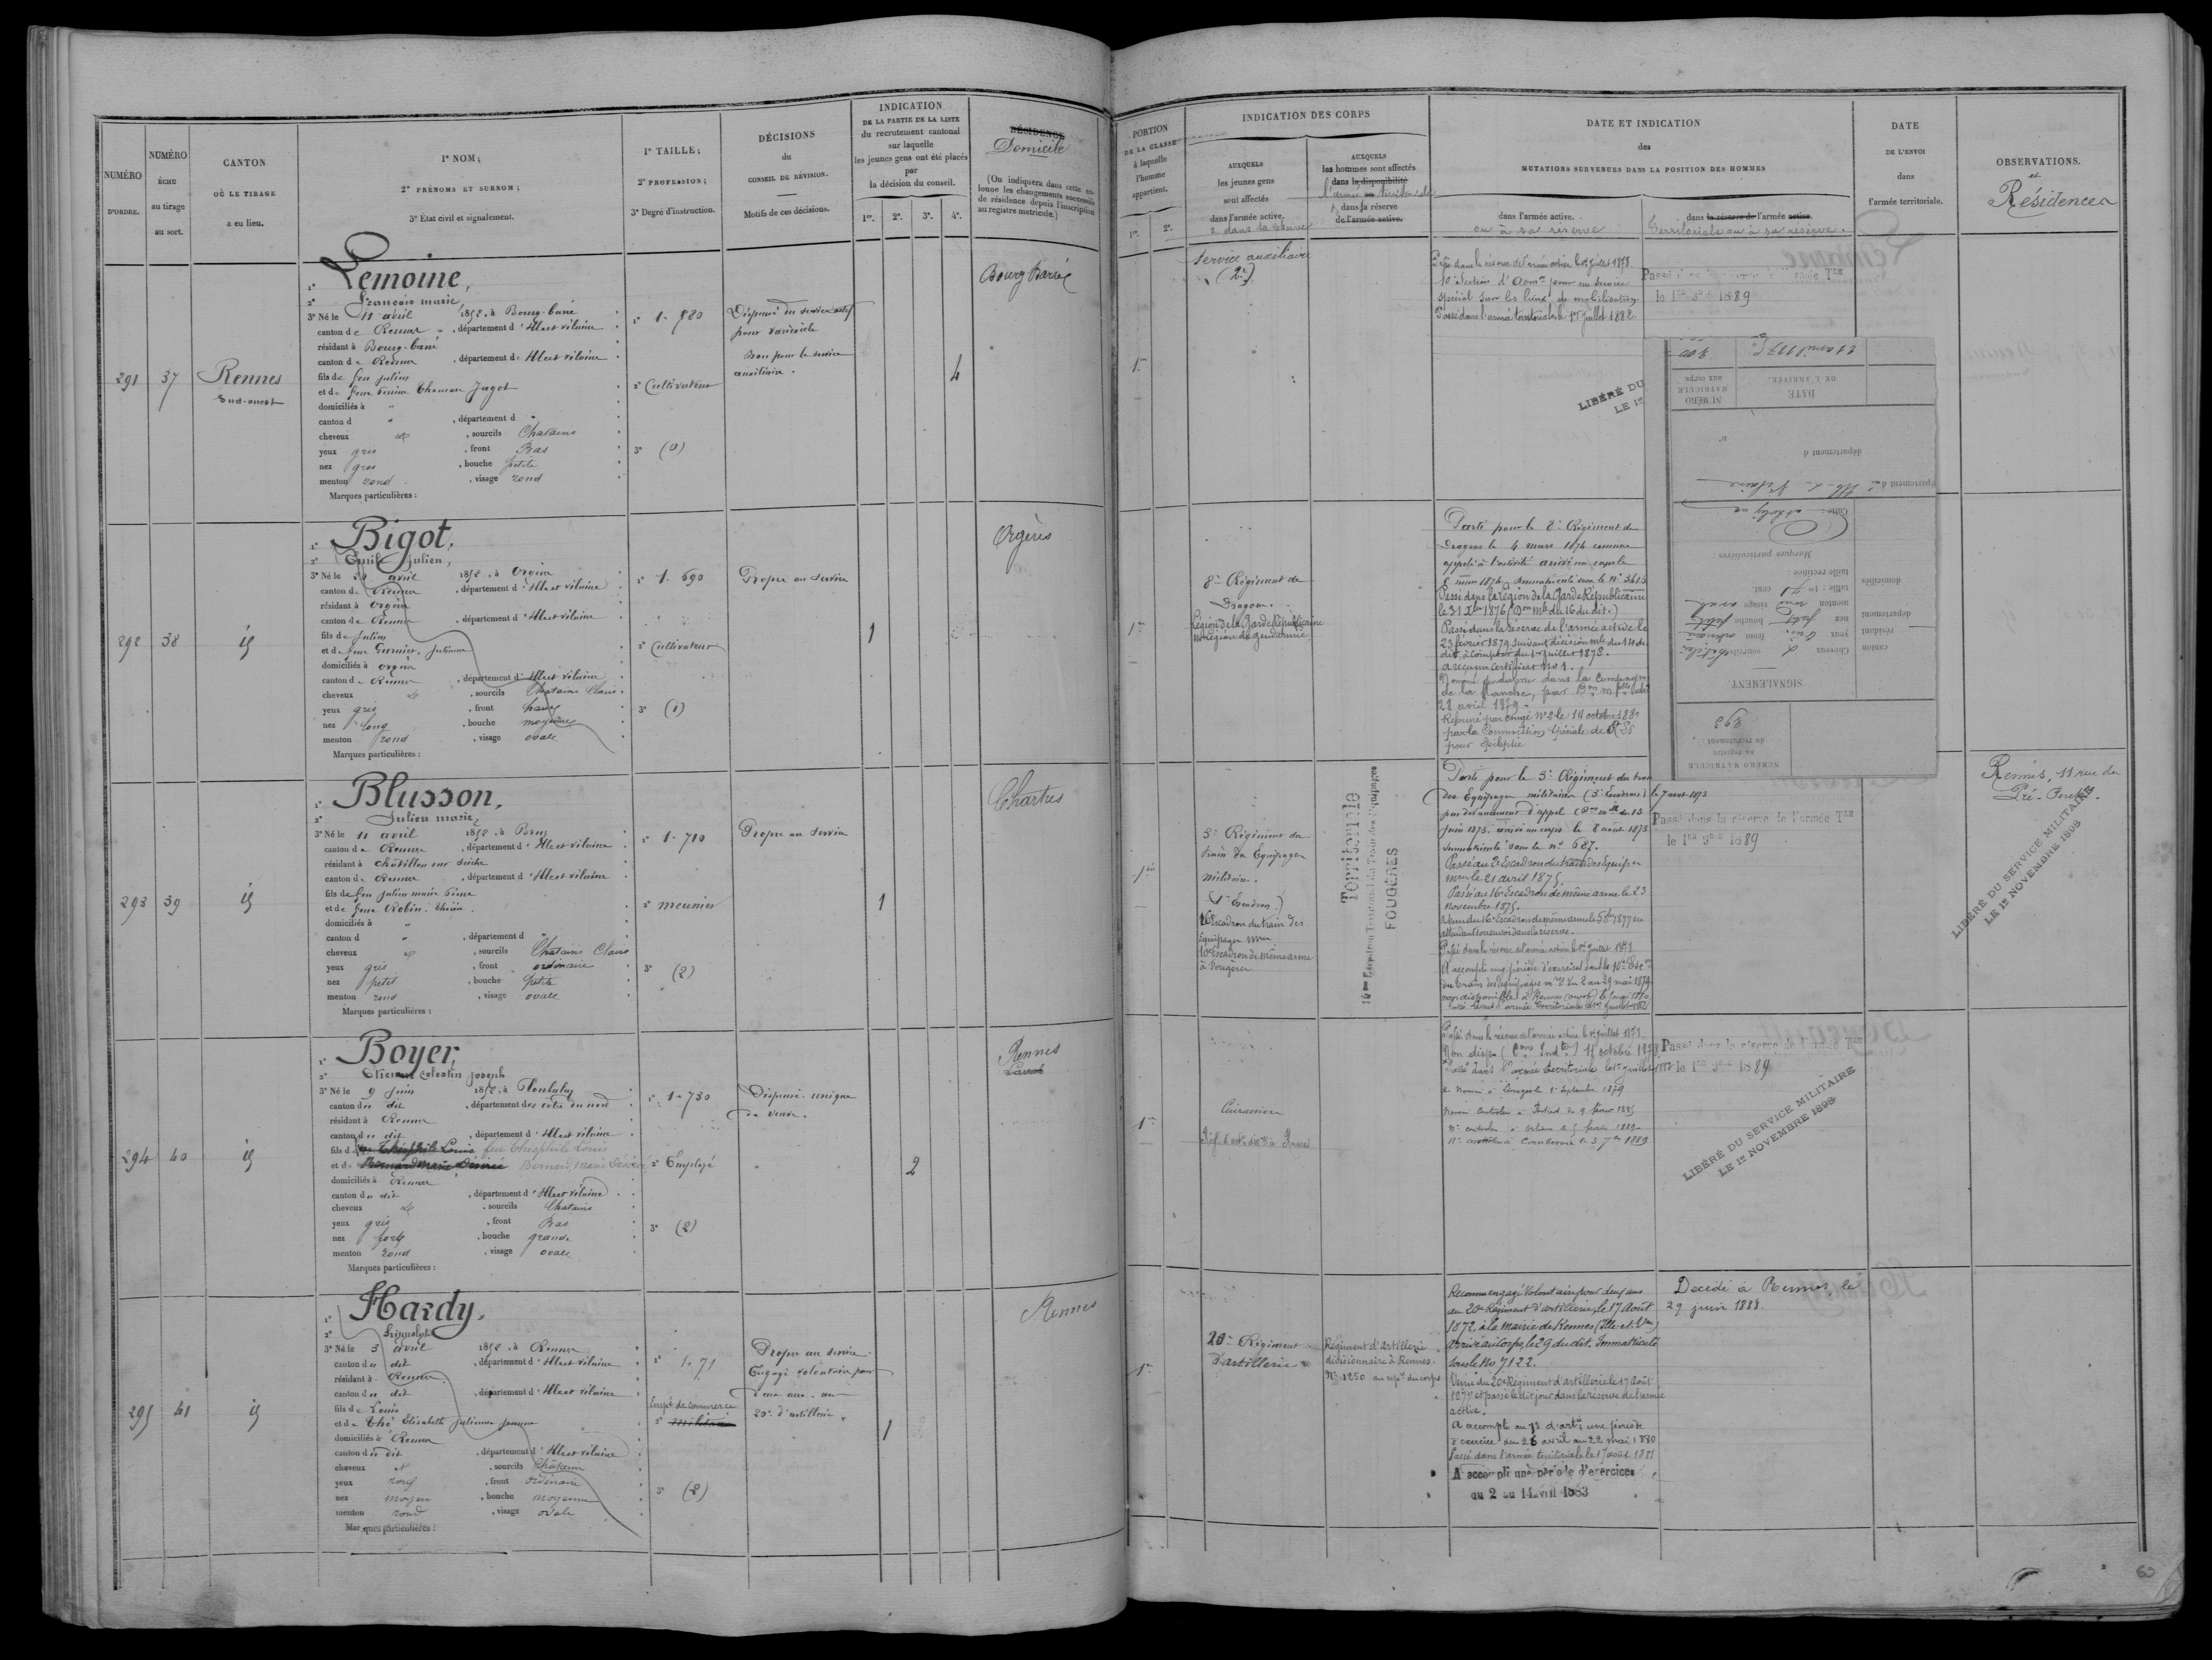 NUMÉRO
D'ORDRE.
NUMÉRO
ÉCHU
au tirage
au sort.
CANTON
OÙ LE TIRAGE
a eu lieu.
1° NOM;
2° PRÉNOMS ET SURNOM;
3° État civil et signalement.
1° TAILLE;
2° PROFESSION;
3° Degré d'instruction.
DÉCISIONS
du
CONSEIL DE RÉVISION.
Motifs de ces décisions.
INDICATION
DE LA PARTIE DE LA LISTE
du recrutement cantonal
sur laquelle
les jeunes gens ont été placés
par
la décision du conseil.
1re. 2e. 3e. 4e.
RÉSIDENCE
Domicile
(On indiquera dans cette co-
lonne les changements successifs
de résidence depuis l'inscription
au registre matricule.)
PORTION
DE LA CLASSE
à laquelle
l'homme
appartient.
1re. 2e.
INDICATION DES CORPS
AUXQUELS
les jeunes gens
sont affectés
dans l'armée active.
& dans la réserve
AUXQUELS
les hommes sont affectés
dans la disponibilité
l'armée territoriale
dans sa réserve
de l'armée active.
DATE ET INDICATION
des
MUTATIONS SURVENUES DANS LA POSITION DES HOMMES
dans l'armée active.
ou à sa réserve
dans la réserve de l'armée active.
Territoriale ou à sa réserve.
DATE
DE L'ENVOI
dans
l'armée territoriale.
OBSERVATIONS.
et
Résidences
291
37
Rennes
Sud-ouest
1° Lemoine,
2° François marie,
3° Né le 11 avril 1852, à Bourg-barré
canton de Rennes, département d'Ille et vilaine
résidant à Bourg-barré
canton de Rennes, département d'Ille et vilaine
fils de feu Julien
et de feue Perrine Thomase Jagot
domiciliés à "
canton d ", département d "
cheveux et, sourcils Chatains
yeux gris, front Bas
nez gros, bouche petite
menton rond, visage rond
Marques particulières :
1° 1. 580
2° Cultivateur
3° (0)
Dispensé du service actif
pour varicocèle
Bon pour le service
auxiliaire.
4
Bourg Barré
1re
Service auxiliaire
(2e)
Passé dans la réserve de l'armée active le 1er juillet 1878.
10e Section d'adm.on pour un service
spécial sur les lieux de mobilisation.
Passé dans l'armée territoriale le 1er juillet 1882.
le 1er 9bre 1889
LIBÉRÉ DU
LE 1er
292
38
id
1° Bigot,
2° Emile Julien,
3° Né le avril 1852, à Orgères
canton de Rennes, département d'Ille et vilaine
résidant à Orgères
canton de Rennes, département d'Ille et vilaine
fils de Julien
et de feue Garnier, Julienne
domiciliés à Orgères
canton de Rennes, département d'Ille et vilaine
cheveux et, sourcils Chatains Clairs
yeux gris, front haut
nez long, bouche moyenne
menton rond, visage ovale
Marques particulières :
1° 1. 690
2° Cultivateur
3° (1)
Propre au service
1
Orgères
1re
8e Régiment de
Dragons.
Légion de la Garde Républicaine
Légion de gendarmie
Parti pour le 8e Régiment de
Dragons le 4 mars 1874 comme
appelé à l'activité arrivé au corps le
mars 1874. Immatriculé sous le n°
Passé dans la légion de la Garde Républicaine
le 31 Xbre 1876 (Don mle du 16 du dit.)
Passé dans la réserve de l'armée active le
23 février 1879 suivant décision mle du 14 du
dit, à compter du 1er juillet 1878.
a reçu un certificat No 1.
Nommé gendarme dans la compagnie
de la Manche, par Don mlle
28 avril 1879.
Réformé par congé No 2 le 14 octobre 1880
par la Commission Spéciale de
pour épilepsie
NUMÉRO MATRICULE
au registre
du recrutement :
293
SIGNALEMENT.
Cheveux sourcils
yeux front
nez bouche petite
menton rond visage ovale
taille : 1m 71 cent.
taille rectifiée :
Marques particulières :
Culte : catholique
canton
résidant
département
domiciliés
département d'Ille & Vilaine
département d
n°
NUMÉRO
MATRICULE
aux corps
300
DATE
DE L'ARRIVÉE.
21 avril 1875
293
39
id
1° Blusson,
2° Julien marie,
3° Né le 11 avril 1852, à Bruz
canton de Rennes, département d'Ille et vilaine
résidant à châtillon sur Seiche
canton de Rennes, département d'Ille et vilaine
fils de feu Julien marie Pierre
et de feue Robin. Thérèse
domiciliés à "
canton d ", département d "
cheveux et, sourcils Chatains Clairs
yeux gris, front ordinaire
nez petit, bouche petite
menton rond, visage ovale
Marques particulières :
1° 1. 710
2° meunier
3° (2)
Propre au service
1
Chartres
1re
3e Régiment du
train des Equipages
militaires.
(1er Escadron)
16e Escadron du train des
équipages mres
10e Escadron de même arme
à Fougères
Territoriale
10me Escadron Territorial du Train des Equipages
FOUGÈRES
Parti pour le 3e Régiment du train
des Equipages militaires le 7 août 1873
par devancement d'appel (Don mlle du 13
juin 1873. arrivé au corps le 8 août 1873
Immatriculé sous le n° 687.
Passé au 2e Escadron du train des équipages
mres le 21 avril 1875
Passé au 16e Escadron de même arme le 23
novembre 1875.
Venu du 16e Escadron de même arme le 1877 en
attendant son envoi dans la réserve.
Passé dans la réserve de l'armée active le 1er juillet 1878
A accompli une période d'exercices dans le 10e Esc.on
du train des équipages mres du 2 au 29 mai 1879
Passé dans l'armée territoriale le 1er juillet 1882
Passé dans la réserve de l'armée Tle
le 1er 9bre 1889
Rennes, 11 rue du
Pré-Perché.
LIBÉRÉ DU SERVICE MILITAIRE
LE 1er NOVEMBRE 1898
294
40
id
1° Boyer,
2° Etienne Celestin Joseph
3° Né le 9 Juin 1852, à Ploubalay
canton du dit, département des côtes du nord
résidant à Rennes
canton du dit, département d'Ille et vilaine
fils de Théophile Louis feu Théophile Louis
et de Bernard Marie Désirée Bernard, Marie Désirée
domiciliés à Rennes
canton du dit, département d'Ille et vilaine
cheveux et, sourcils Chatains
yeux gris, front Bas
nez fort, bouche grande
menton rond, visage ovale
Marques particulières :
1° 1. 730
2° Employé
3° (2)
Dispensé. unique
de veuve.
2
Rennes
Laval
1re
Cuirassiers
Régt d'artie dre à Rennes
Passé dans la réserve de l'armée active le 1er juillet 1878.
Non dispo. 15 octobre 1878
Passé dans l'armée territoriale le 1er juillet 1882
Nommé à Limoges le 1er Septembre 1879
Nommé Contrôleur à le 9 février 1885
Nt contrôleur à Orléans le 5 février 1889
Nt contrôleur à Courbevoie le 3 7bre 1889
Passé dans la réserve de l'armée Tle
le 1er 9bre 1889
LIBÉRÉ DU SERVICE MILITAIRE
LE 1er NOVEMBRE 1898
295
41
id
1° Hardy,
2° hippolyte
3° Né le 3 avril 1852, à Rennes
canton du dit, département d'Ille et vilaine
résidant à Rennes
canton du dit, département d'Ille et vilaine
fils de Louis
et de Thé Elisabeth Julienne Jeanne
domiciliés à Rennes
canton du dit, département d'Ille et vilaine
cheveux et, sourcils Châtains
yeux roux, front ordinaire
nez moyen, bouche moyenne
menton rond, visage ovale
Marques particulières :
1° 1. 71
Empl. de commerce
2° militaire
3° (2)
Propre au service.
Engagé volontaire pour
deux ans. au
20e d'artillerie.
1
Rennes
1re
20e Régiment
d'artillerie
Régiment d'artillerie
divisionnaire à Rennes.
N° 1250 au rép.re du corps
Reconnu engagé Volontaire pour deux ans
au 20e Régiment d'artillerie, le 17 Août
1872, à la mairie de Rennes (Ille-et-Vne)
arrivé au Corps, le 29 du dit. Immatriculé
sous le No 7122.
Venu du 20e Régiment d'artillerie le 17 Août
1877 et passé le dit jour dans la réserve de l'armée
active.
A accompli au 7e d'artie une période
d'exercice du 26 avril au 22 mai 1880
Passé dans l'armée territoriale le 17 août 1881
A accompli une période d'exercices
du 2 au 14 avril 1883
Décédé à Rennes, le
29 juin 1888.
60